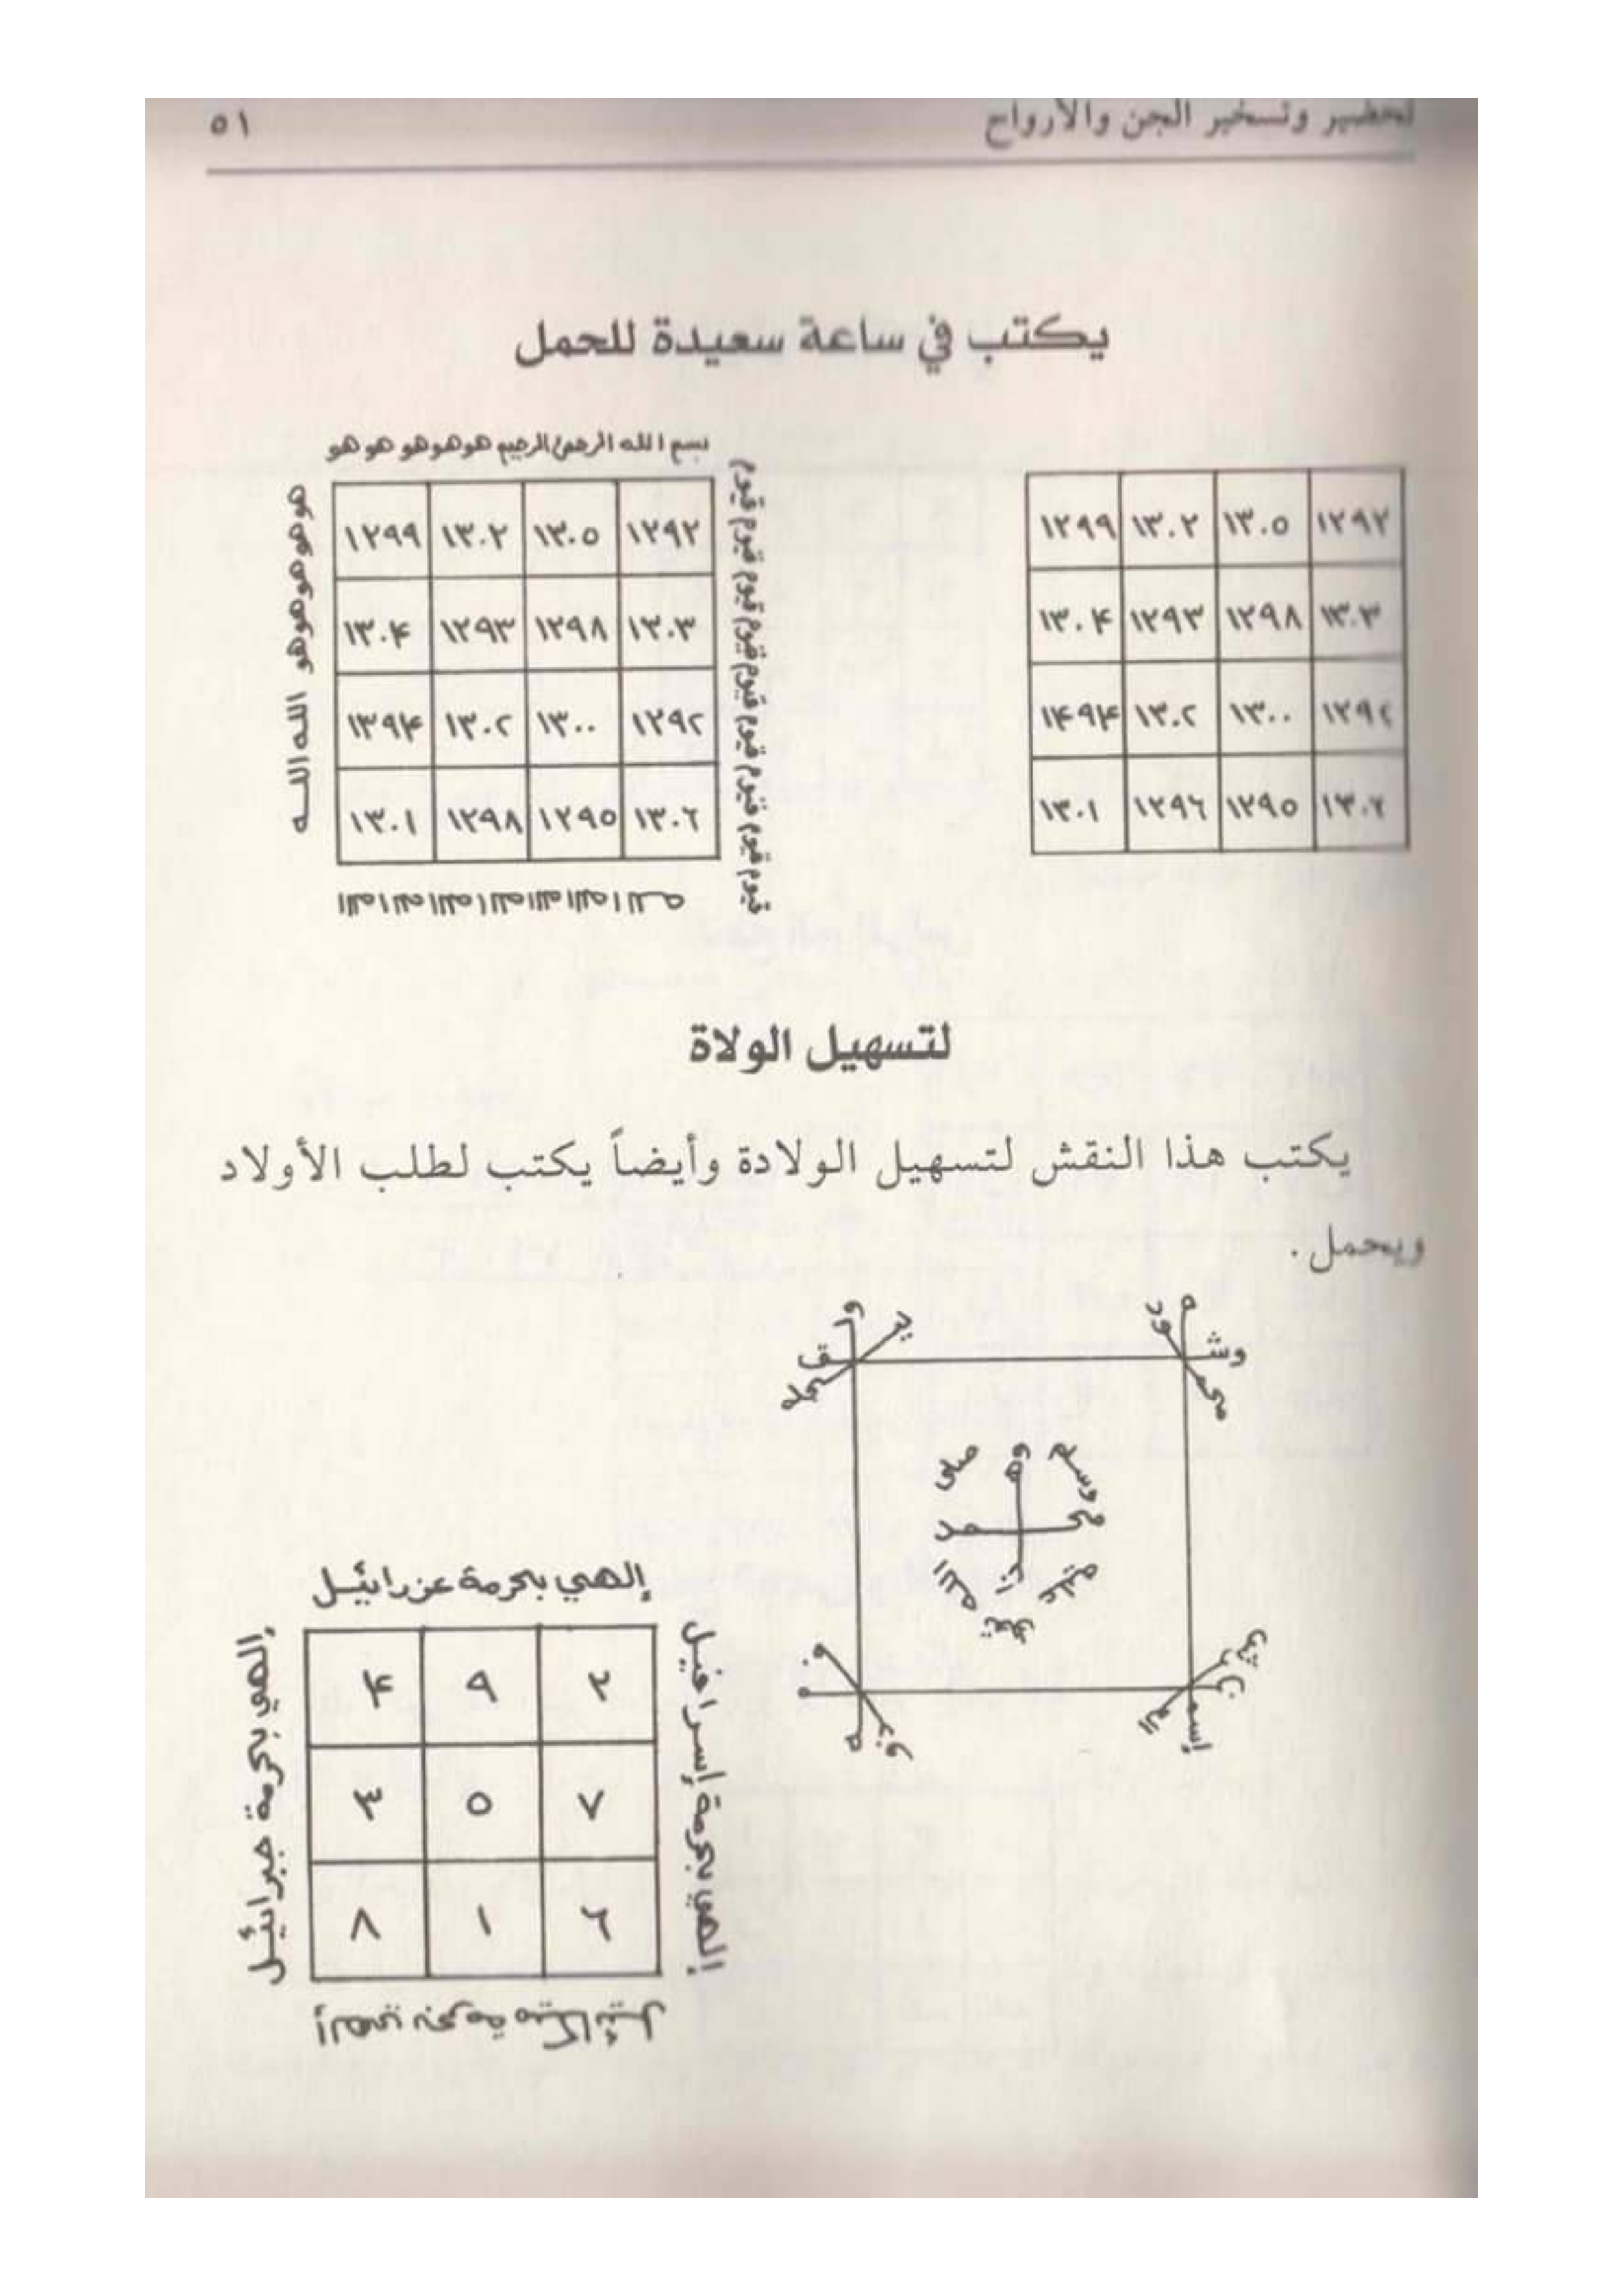 لتحضير وتسخير الجن والأرواح ٥١
يكتب في ساعة سعيدة للحمل
١٢٩٩ ١٣٠٢ ١٣٠٥ ١٢٩٢
١٣٠۴ ١٢٩٣ ١٢٩٨ ١٣٠٣
١۴٩۴ ١٣٠٢ ١٣٠٠ ١٢٩٢
١٣٠١ ١٢٩٦ ١٢٩٥ ١٣٠٦
بسم الله الرحمن الرحيم هو هو هو هو هو
١٢٩٩ ١٣٠٢ ١٣٠٥ ١٢٩٢
١٣٠۴ ١٢٩٣ ١٢٩٨ ١٣٠٣
١٣٩۴ ١٣٠٢ ١٣٠٠ ١٢٩٢
١٣٠١ ١٢٩٨ ١٢٩٥ ١٣٠٦
قيوم قيوم قيوم قيوم قيوم قيوم قيوم قيوم قيوم
هو هو هو هو هو الله الله
لتسهيل الولاة
يكتب هذا النقش لتسهيل الولادة وأيضاً يكتب لطلب الأولاد
ويحمل.
إلهي بحرمة عزرائيل
إلهي بحرمة جبرائيل
۴ ٩ ٢
٣ ٥ ٧
٨ ١ ٦
إلهي بحرمة إسرافيل
إلهي بحرمة ميكائيل